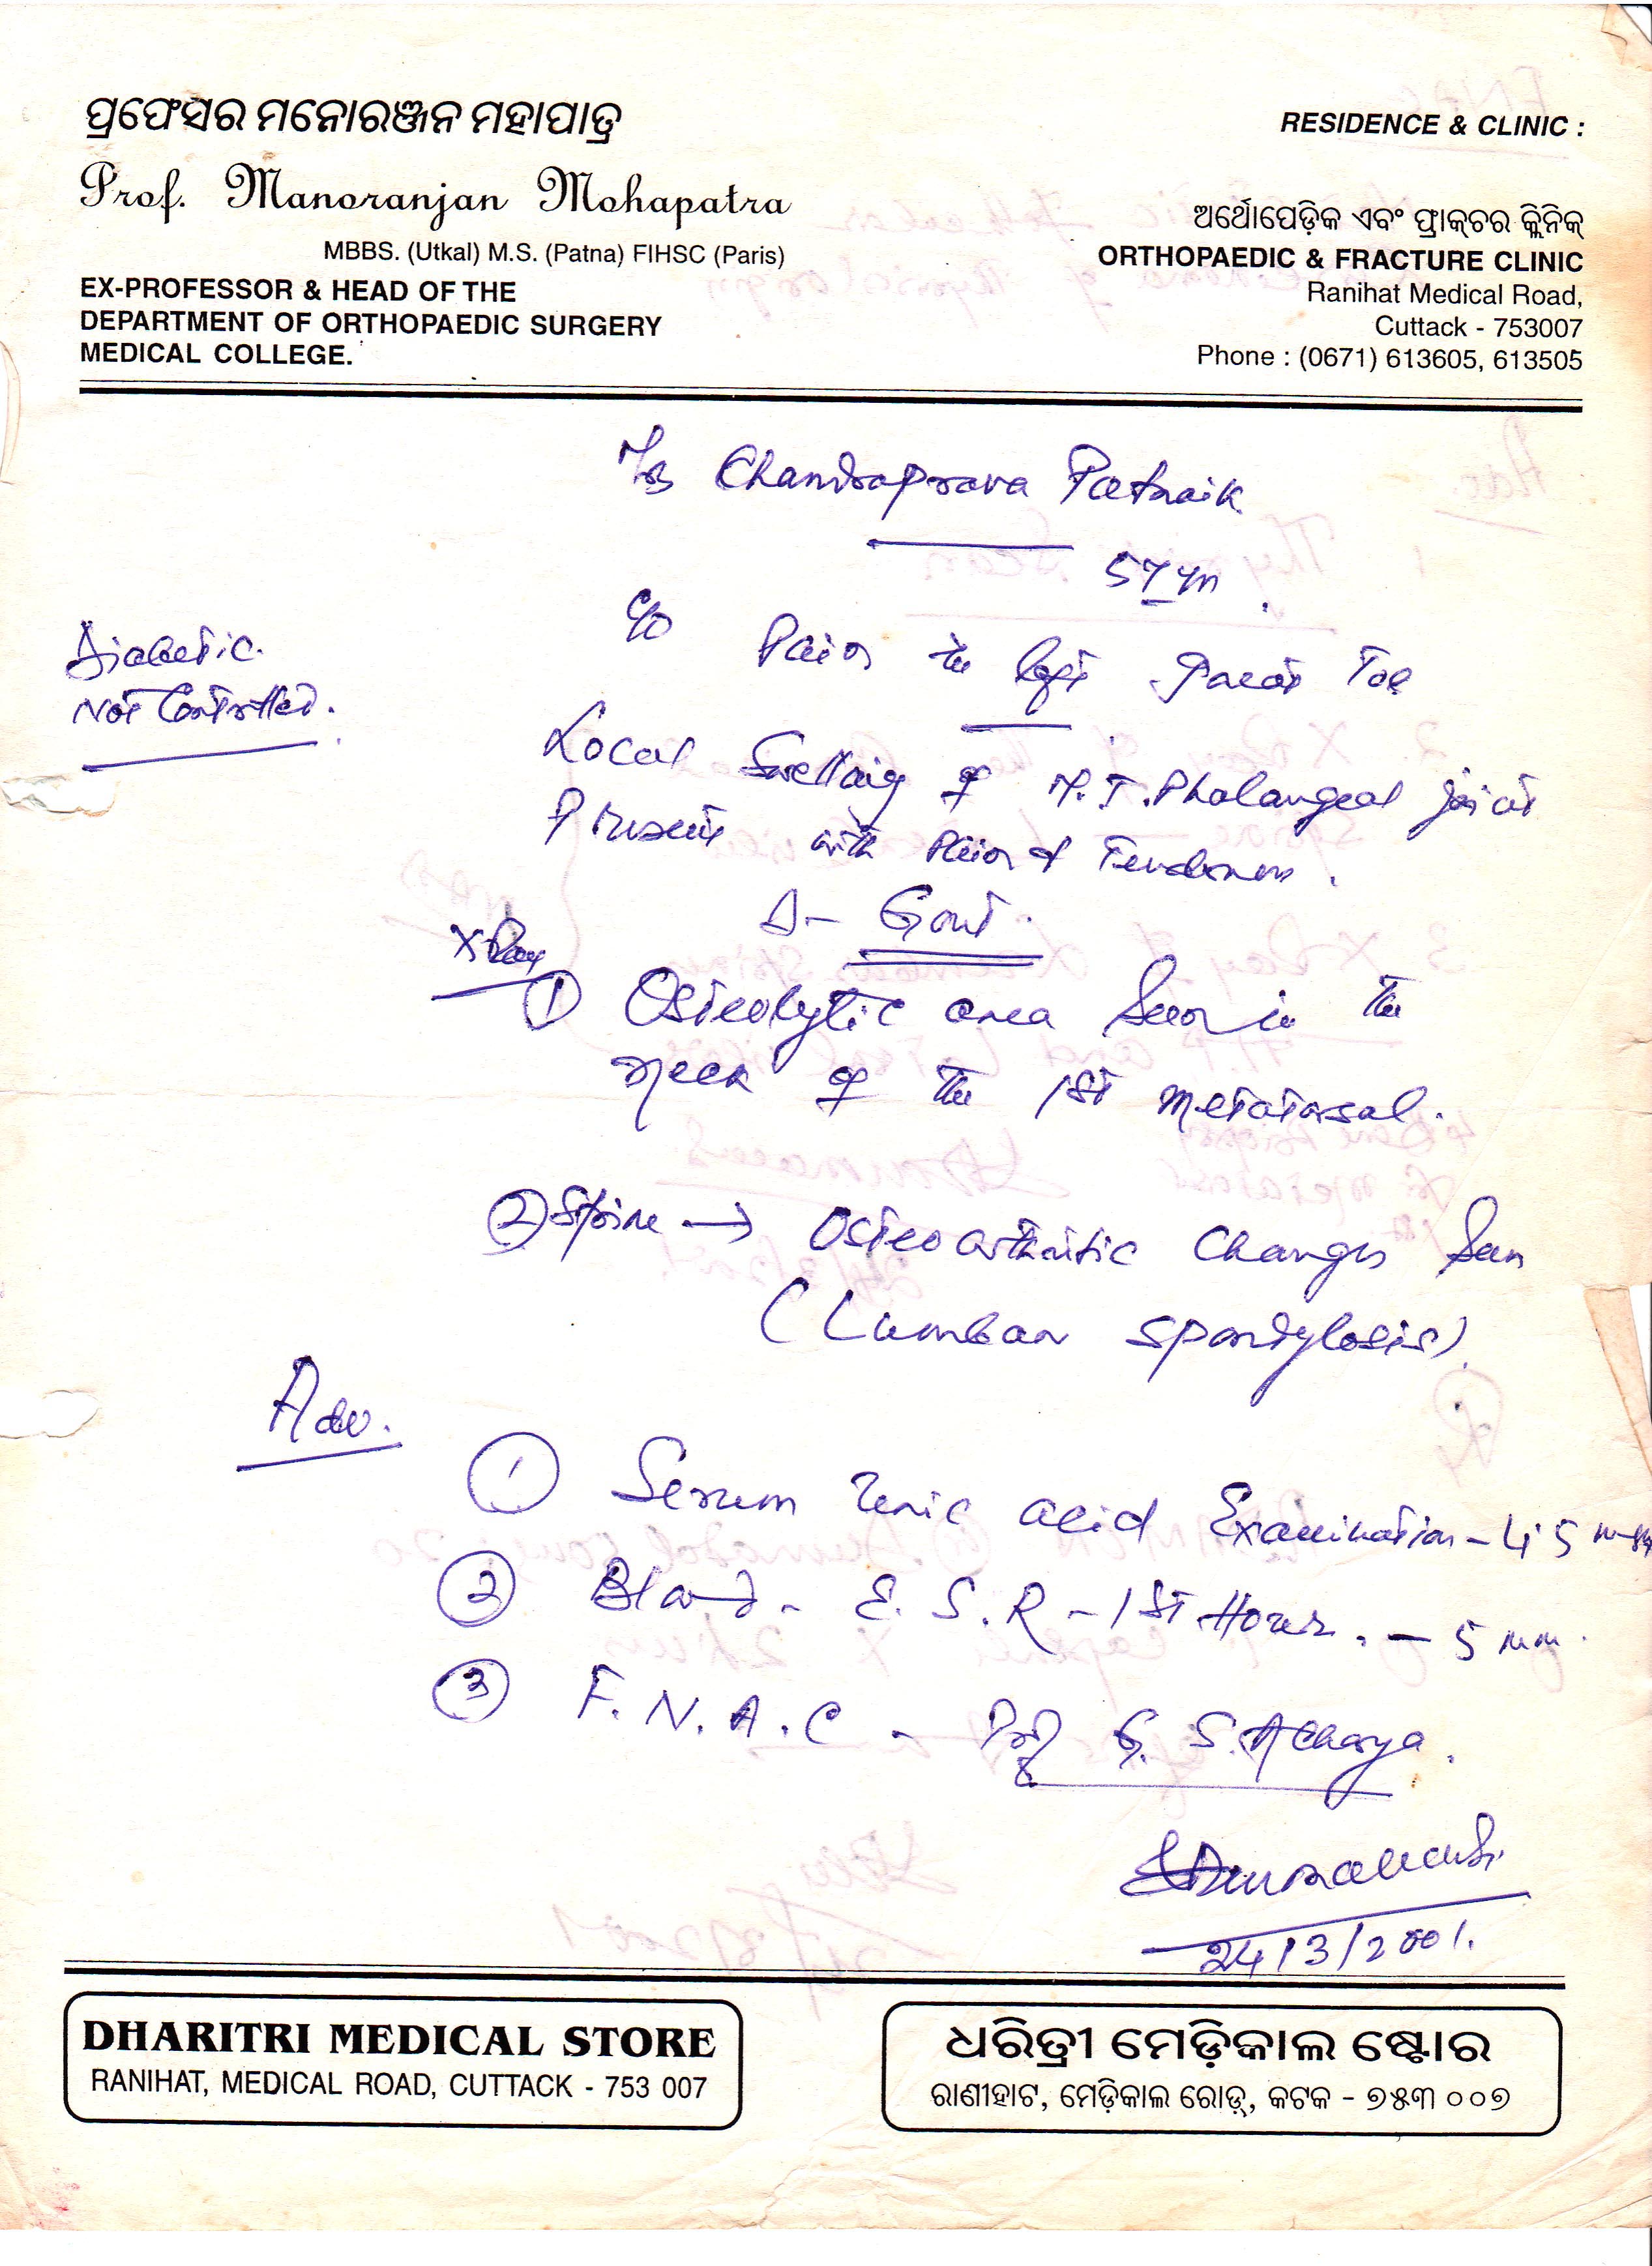 ପ୍ରଫେସର ମନୋରଞ୍ଜନ ମହାପାତ୍ର
Prof. Manoranjan Mohapatra
MBBS. (Utkal) M.S. (Patna) FIHSC (Paris)
EX-PROFESSOR & HEAD OF THE
DEPARTMENT OF ORTHOPAEDIC SURGERY
MEDICAL COLLEGE.
RESIDENCE & CLINIC :
ଅର୍ଥୋପେଡ଼ିକ ଏବଂ ଫ୍ରାକ୍ଚର କ୍ଲିନିକ୍
ORTHOPAEDIC & FRACTURE CLINIC
Ranihat Medical Road,
Cuttack - 753007
Phone : (0671) 613605, 613505
Mrs Chandraprava Patnaik
57 yrs.
Diabetic.
Not Controlled.
C/O Pain in left Great Toe
Local Swelling of M.T. Phalangeal joint
Present with Pain & Tenderness.
D- Gout.
X Ray
① Osteolytic area Seen in the
neck of the 1st metatarsal.
② Spine → Osteo arthritic Changes Seen
(Lumbar spondylosis).
Adv.
① Serum Uric acid Examination - 4.5
② Blood - E.S.R - 1st Hour. - 5 mm.
③ F.N.A.C - Prof G.S. Acharya.
24/3/2001.
DHARITRI MEDICAL STORE
RANIHAT, MEDICAL ROAD, CUTTACK - 753 007
ଧରିତ୍ରୀ ମେଡ଼ିକାଲ ଷ୍ଟୋର
ରାଣୀହାଟ, ମେଡ଼ିକାଲ ରୋଡ଼୍, କଟକ - ୭୫୩ ୦୦୭